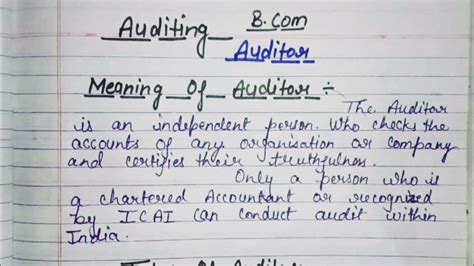 Auditing B.Com
Auditor
Meaning Of Auditor ÷
The Auditor
is an independent person. Who checks the
accounts of any organisation or company
and certifies their truthfulness.
Only a person who is
a chartered Accountant or recognized
by ICAI can conduct audit within
India.